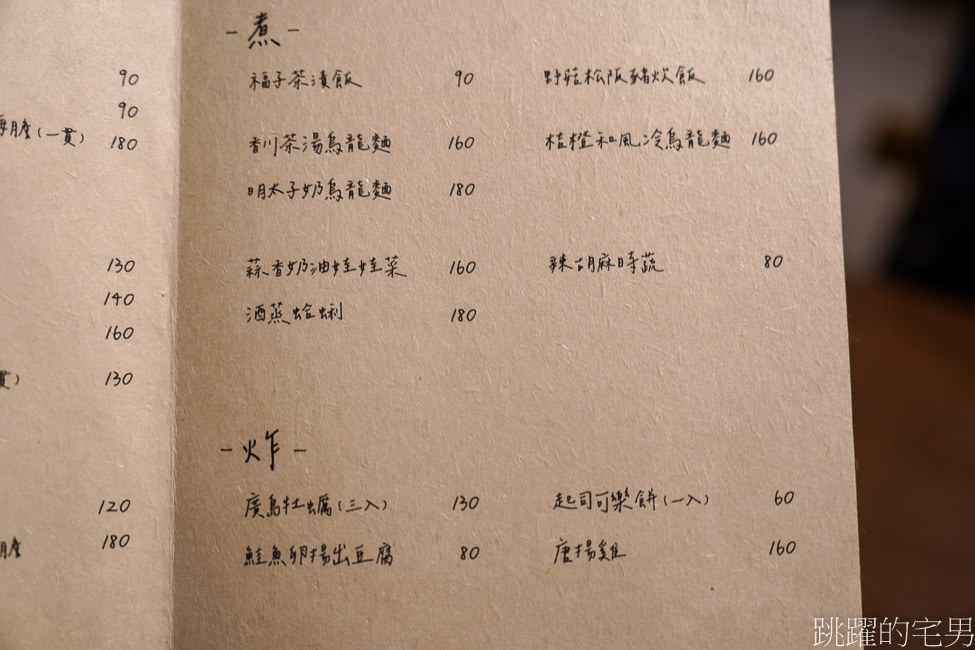 90
90
膽(一貫) 180
130
140
160
貫) 130
120
膽 180
-煮-
福子茶漬飯 90 野菇松阪豬炊飯 160
香川茶湯烏龍麵 160 桔橙和風冷烏龍麵 160
明太子奶烏龍麵 180
蒜香奶油娃娃菜 160 辣胡麻時蔬 80
酒蒸蛤蜊 180
-炸-
廣島牡蠣(三入) 130 起司可樂餅(一入) 60
鮭魚卵揚出豆腐 80 唐揚雞 160
跳躍的宅男